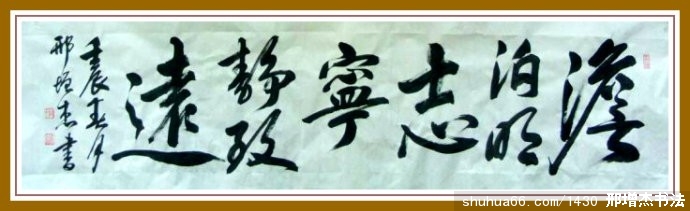 澹泊明志寧静致遠
壬辰春月
邢增杰書
shuhua66.com/1430 邢增杰书法